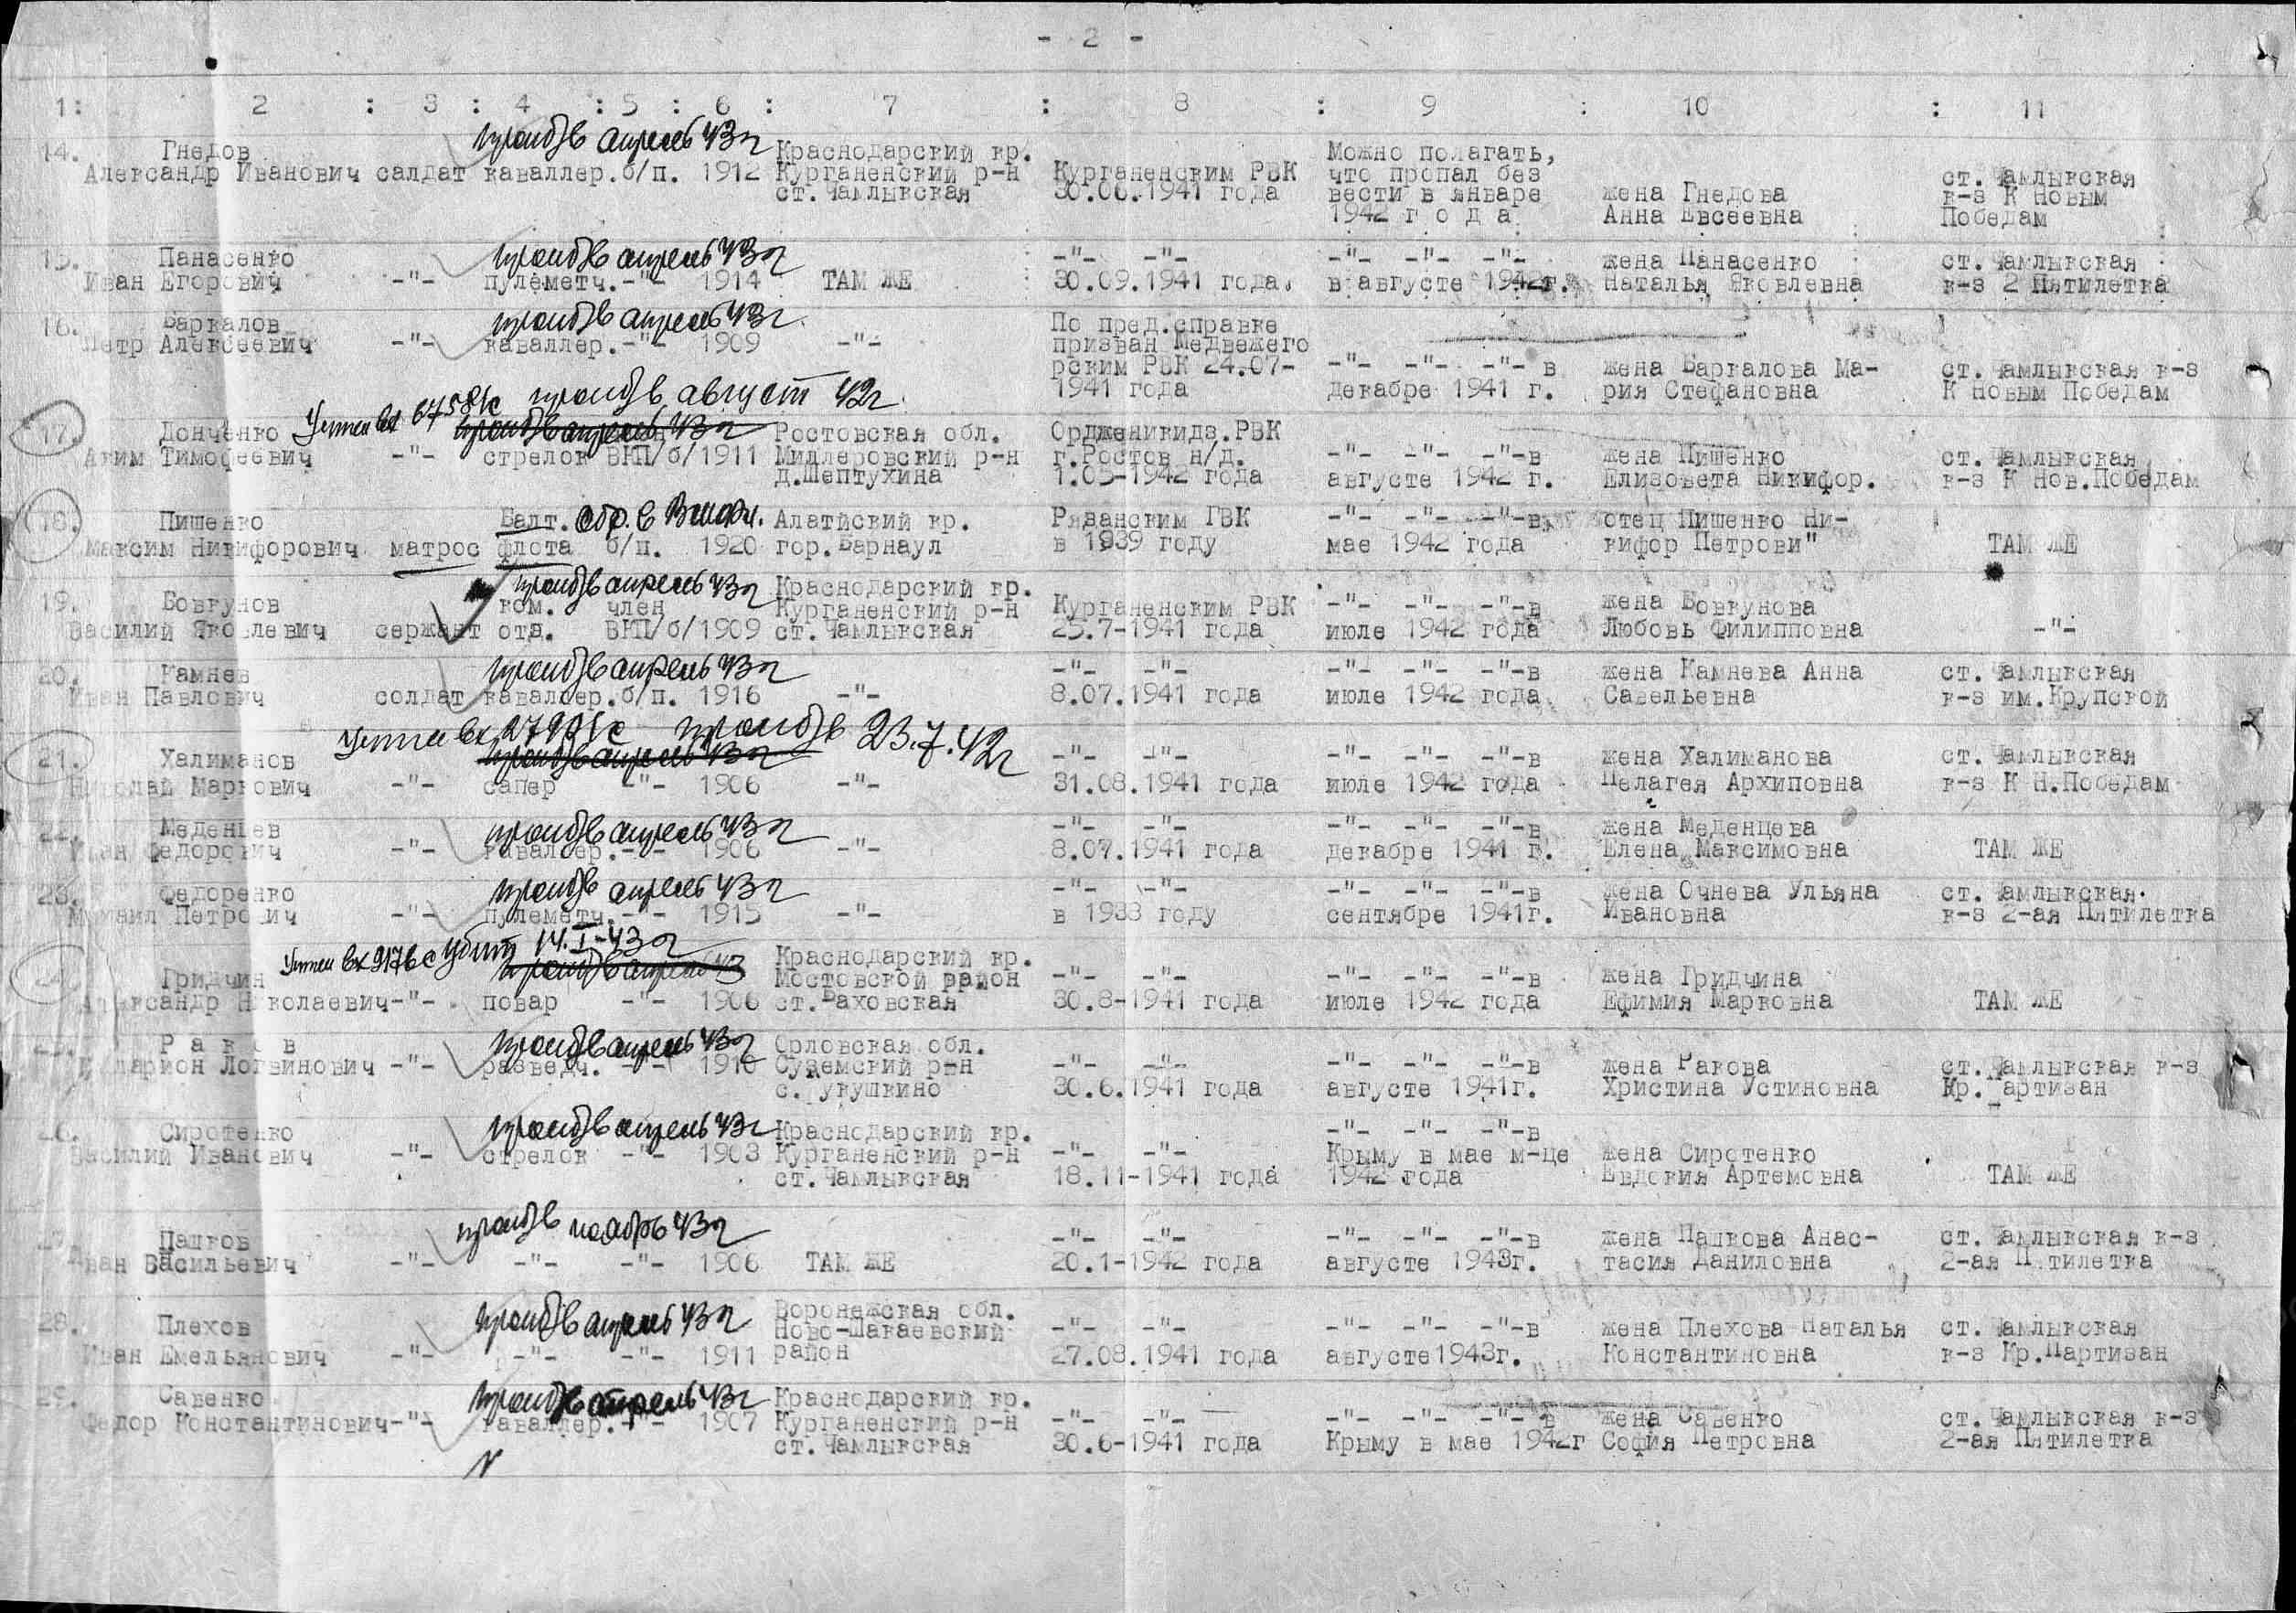 - 2 -
1: 2 : 3 : 4 : 5 : 6 : 7 : 8 : 9 : 10 : 11
пропбв апрель 43г
14. Гнедов Краснодарский кр. Можно полагать,
Александр Иванович солдат каваллер.б/п. 1912 Курганенский р-н Курганенским РВК что пропал без ст.Чамлыкская
ст.Чамлыкская 30.06.1941 года вести в январе жена Гнедова к-з К Новым
1942 г о д а Анна Евсеевна Победам
пропбв апрель 43г
15. Панасенко -"- -"- -"- -"- -"- жена Панасенко ст.Чамлыкская
Иван Егорович -"- пулеметч.-"- 1914 ТАМ ЖЕ 30.09.1941 года. в августе 1942г. Наталья Яковлевна к-з 2 Пятилетка
пропбв апрель 43г.
16. Баркалов По пред.справке
Петр Алексеевич -"- каваллер.-"- 1909 -"- призван Медвежего
рским РВК 24.07- -"- -"- -"- в жена Баркалова Ма- ст.Чамлыкская к-з
1941 года декабре 1941 г. рия Стефановна К Новым Победам
пропбв август 42г.
Учтен вх 67581с пропбв апрель 43г
17. Донченко Ростовская обл. Ордженикидз.РВК
Аким Тимофеевич -"- стрелок ВКП/б/1911 Миллеровский р-н г.Ростов н/д. -"- -"- -"-в жена Пишенко ст.Чамлыкская
д.Шептухина 1.05-1942 года августе 1942 г. Елизовета Никифор. к-з К Нов.Победам
18. Пишенко Балт. Алатйский кр. Рязанским ГВК -"- -"- -"-в отец Пишенко Ни-
Максим Никифорович матрос флота б/п. 1920 гор.Барнаул в 1939 году мае 1942 года кифор Петрови" ТАМ ЖЕ
пропбв апрель 43г
19. Бовкунов ком. член Краснодарский кр. Курганенский р-н Курганенским РВК -"- -"- -"-в жена Бовкунова
Василий Яковлевич сержант отд. ВКП/б/1909 ст.Чамлыкская 25.7-1941 года июле 1942 года Любовь Филипповна -"-
пропбв апрель 43г
20. Камнев -"- -"- -"- -"- -"-в жена Камнева Анна ст.Чамлыкская
Иван Павлович солдат каваллер.б/п. 1916 -"- 8.07.1941 года июле 1942 года Савельевна к-з им.Крупской
Учтен вх пропбв 23.7.42г
пропбв апрель 43г
21. Халиманов -"- -"- -"- -"- -"-в жена Халиманова ст.Чамлыкская
Николай Маркович -"- сапер -"- 1906 -"- 31.08.1941 года июле 1942 года Пелагея Архиповна к-з К Н.Победам
пропбв апрель 43г
22. Меденцев -"- -"- -"- -"- -"-в жена Меденцева
Иван Федорович -"- каваллер.-"- 1906 -"- 8.07.1941 года декабре 1941 г. Елена Максимовна ТАМ ЖЕ
пропбв апрель 43г
23. Федоренко -"- -"- -"- -"- -"-в жена Очнева Ульяна ст.Чамлыкская
Михаил Петрович -"- пулеметч.-"- 1915 -"- в 1938 году сентябре 1941г. Ивановна к-з 2-ая Пятилетка
Учтен вх 9176с убит 14.I-43г
пропбв апрель 43
24. Гридчин Краснодарский кр. Мостовской район -"- -"- -"- -"- -"-в жена Гридчина
Александр Николаевич-"- повар -"- 1906 ст.Баховская 30.8-1941 года июле 1942 года Ефимия Марковна ТАМ ЖЕ
пропбв апрель 43г
25. Р а к о в Орловская обл.
Илларион Логвинович -"- разведч. -"- 1910 Суземский р-н -"- -"- -"- -"- -"-в жена Ракова ст.Чамлыкская к-з
с. укушкино 30.6.1941 года августе 1941г. Христина Устиновна Кр.Партизан
пропбв апрель 43г
26. Сиротенко Краснодарский кр. -"- -"- -"-в
Василий Иванович -"- стрелок -"- 1903 Курганенский р-н -"- -"- Крыму в мае м-це жена Сиротенко
ст.Чамлыкская 18.11-1941 года 1942 года Евдокия Артемовна ТАМ ЖЕ
пропбв ноябрь 43г
27. Пашков -"- -"- -"- -"- -"-в жена Пашкова Анас- ст.Чамлыкская к-з
Иван Васильевич -"- -"- -"- 1906 ТАМ ЖЕ 20.1-1942 года августе 1943г. тасия Даниловна 2-ая Пятилетка
пропбв апрель 43г
28. Плехов Воронежская обл. Ново-Шакаевский -"- -"- -"- -"- -"-в жена Плехова Наталья ст.Чамлыкская
Иван Емельянович -"- -"- -"- 1911 район 27.08.1941 года августе1943г. Константиновна к-з Кр.Партизан
пропбв апрель 43г
29. Савенко Краснодарский кр.
Федор Константинович-"- каваллер.-"- 1907 Курганенский р-н -"- -"- -"- -"- -"- в жена Савенко ст.Чамлыкская к-з
ст.Чамлыкская 30.6-1941 года Крыму в мае 1942г София Петровна 2-ая Пятилетка